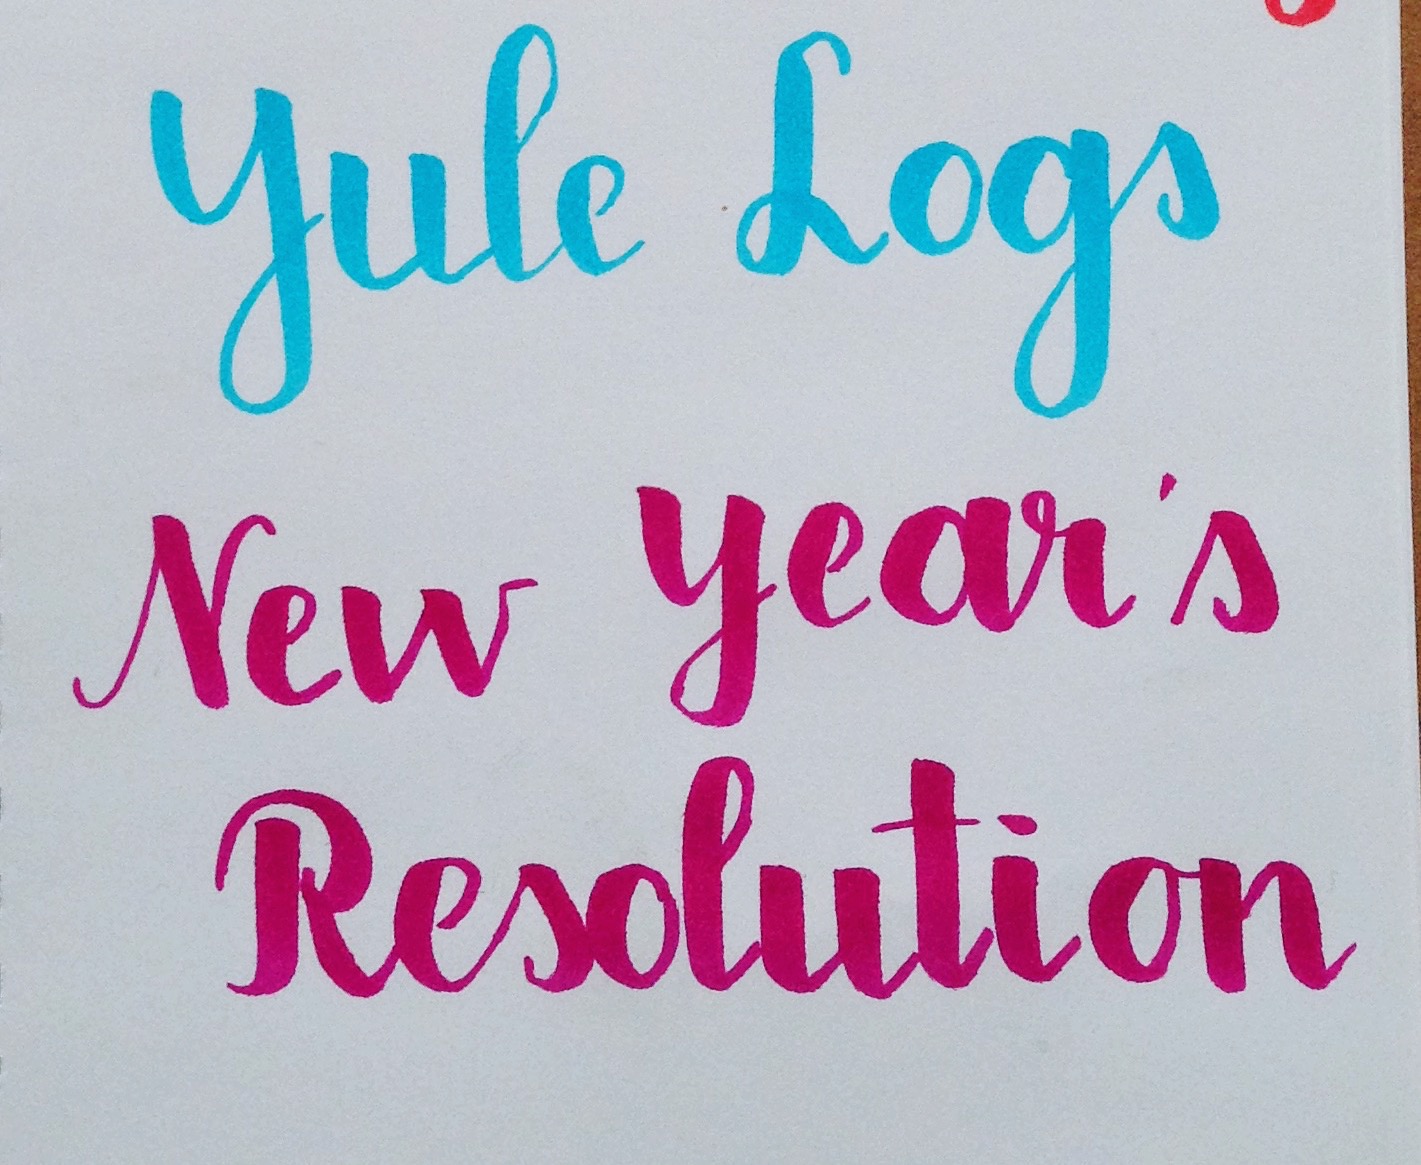 Yule Logs
New Year's
Resolution